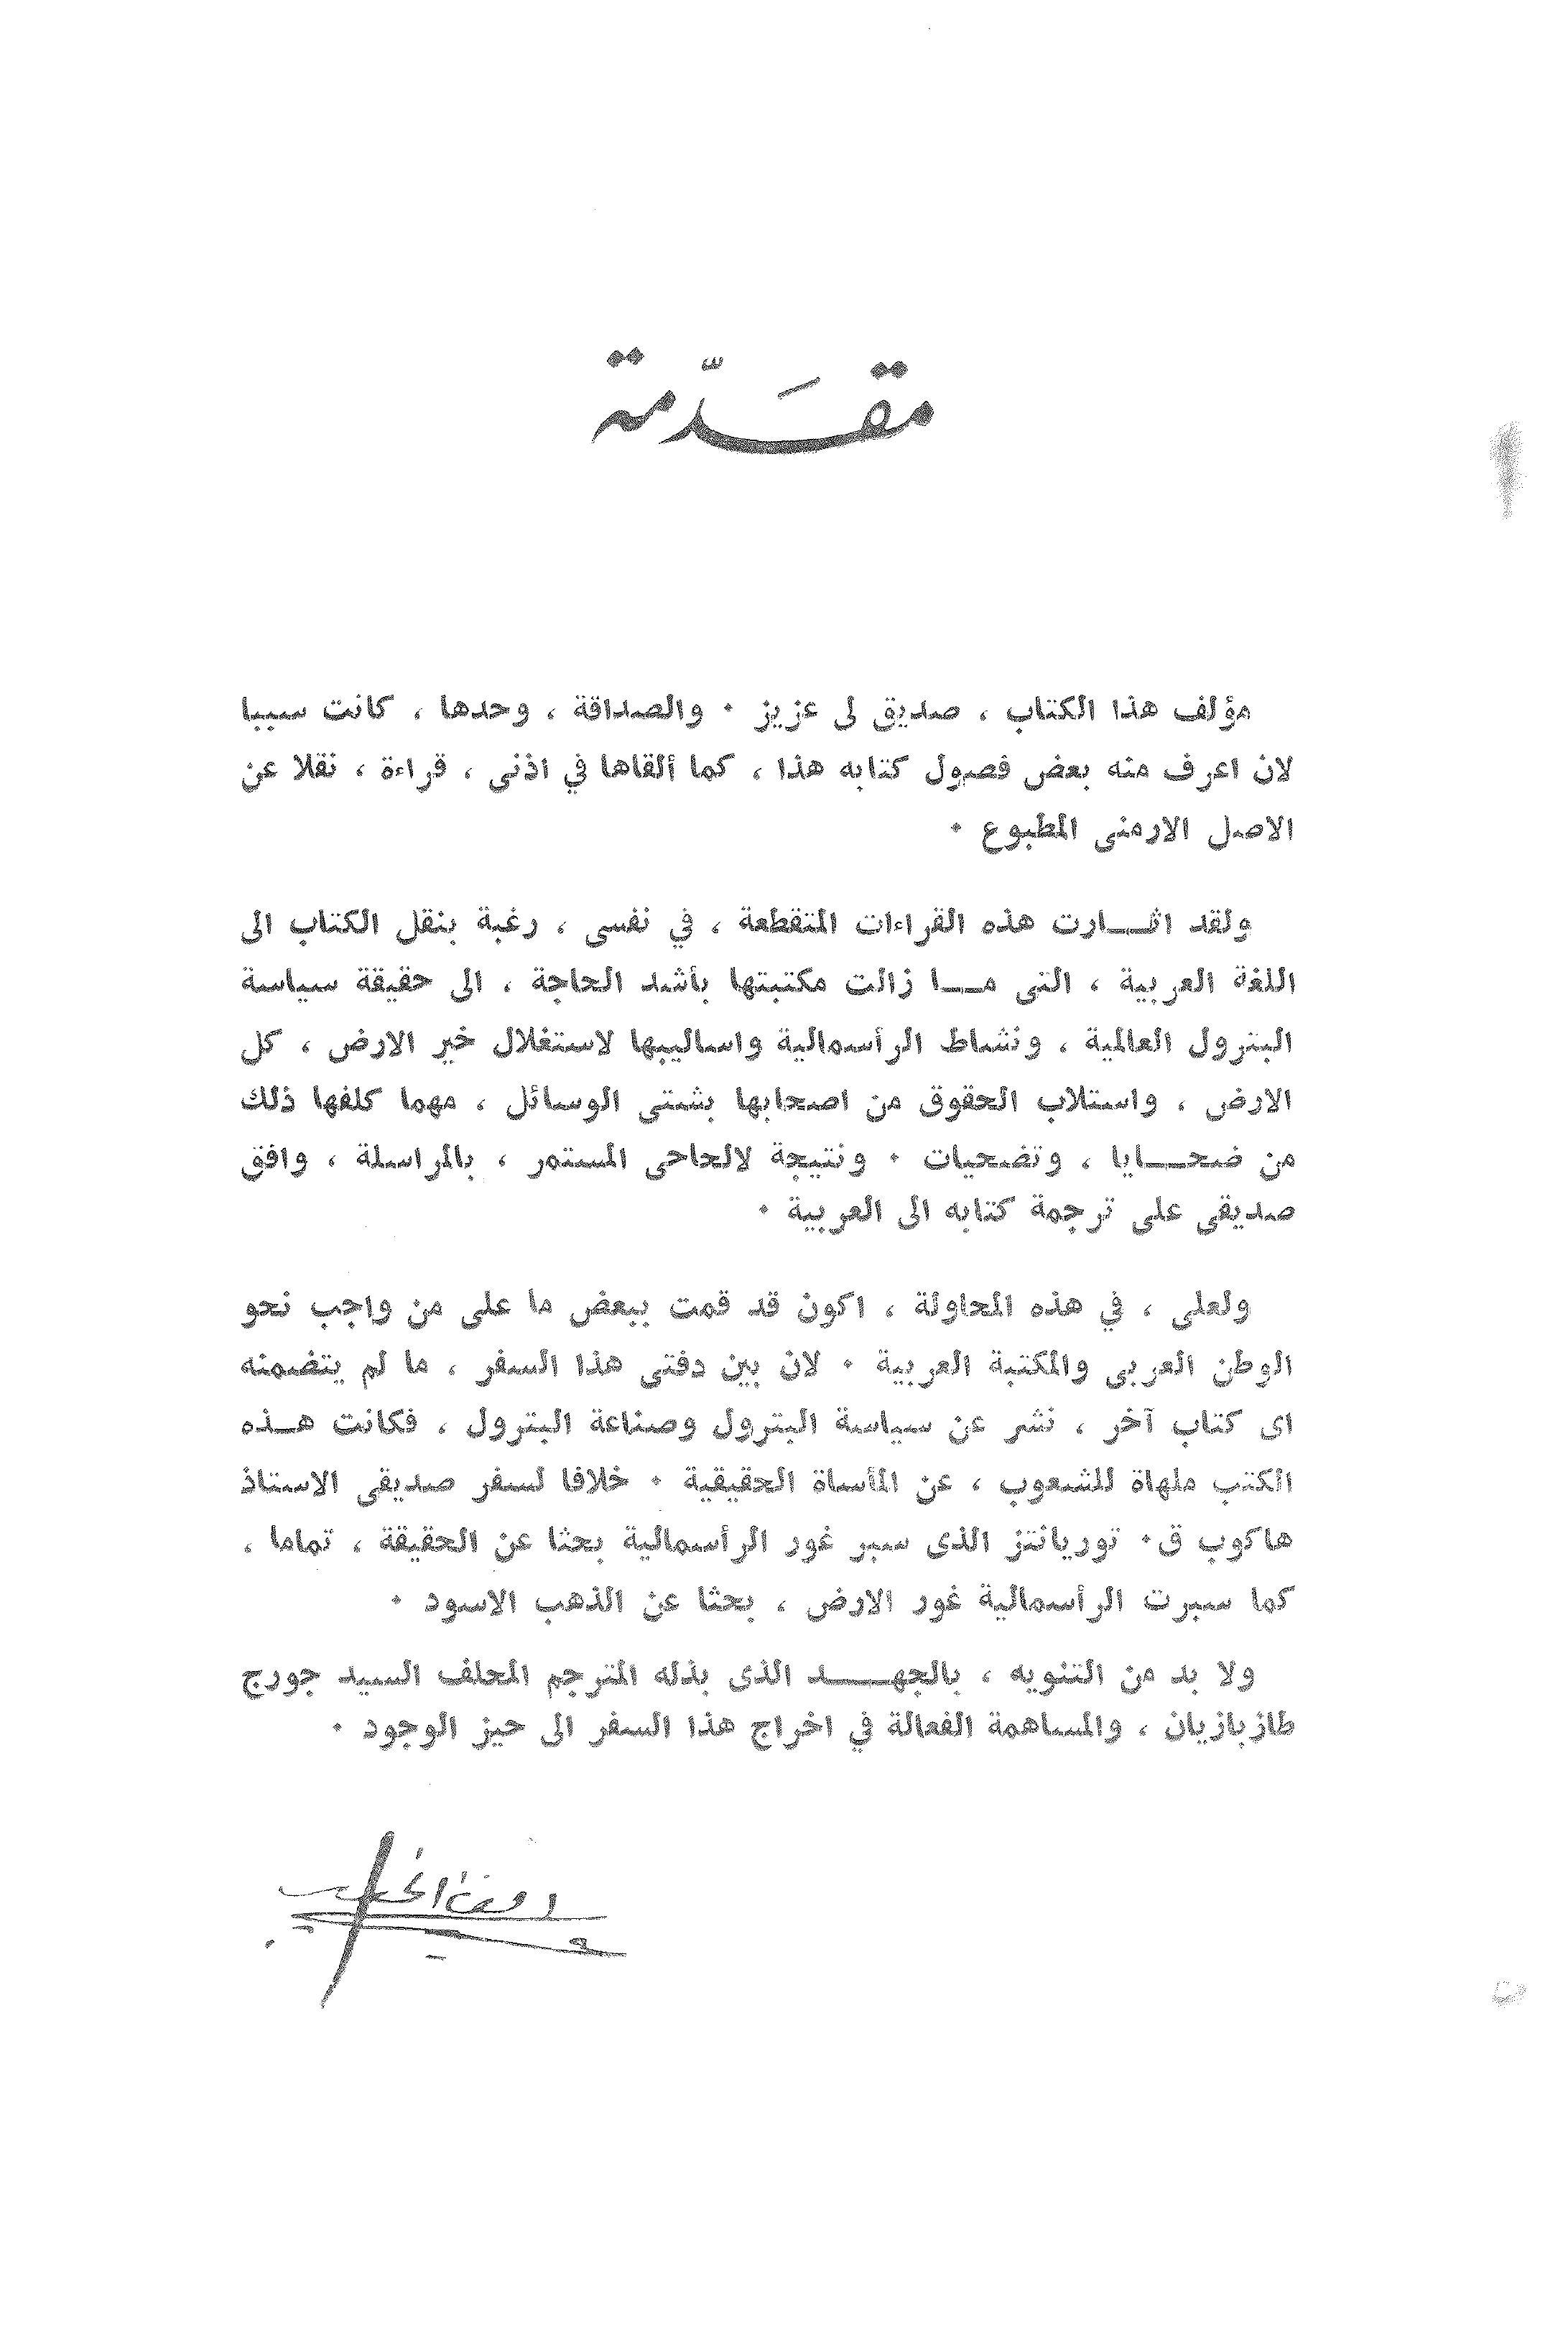 مقَدّمة
مؤلف هذا الكتاب ، صديق لى عزيز ٠ والصداقة ، وحدها ، كانت سببا
لان اعرف منه بعض فصول كتابه هذا ، كما ألقاها في اذنى ، قراءة ، نقلا عن
الاصل الارمنى المطبوع ٠
ولقد اثـــارت هذه القراءات المتقطعة ، في نفسى ، رغبة بنقل الكتاب الى
اللغة العربية ، التى مـــا زالت مكتبتها بأشد الحاجة ، الى حقيقة سياسة
البترول العالمية ، ونشاط الرأسمالية واساليبها لاستغلال خير الارض ، كل
الارض ، واستلاب الحقوق من اصحابها بشتى الوسائل ، مهما كلفها ذلك
من ضحـــايا ، وتضحيات ٠ ونتيجة لالحاحى المستمر ، بالمراسلة ، وافق
صديقى على ترجمة كتابه الى العربية ٠
ولعلى ، في هذه المحاولة ، اكون قد قمت ببعض ما على من واجب نحو
الوطن العربى والمكتبة العربية ٠ لان بين دفتى هذا السفر ، ما لم يتضمنه
اى كتاب آخر ، نشر عن سياسة البترول وصناعة البترول ، فكانت هـــذه
الكتب ملهاة للشعوب ، عن المأساة الحقيقية ٠ خلافا لسفر صديقى الاستاذ
هاكوب ق٠ توريانتز الذى سبر غور الرأسمالية بحثا عن الحقيقة ، تماما ،
كما سبرت الرأسمالية غور الارض ، بحثا عن الذهب الاسود ٠
ولا بد من التنويه ، بالجهـــــد الذى بذله المترجم المحلف السيد جورج
طازبازيان ، والمساهمة الفعالة في اخراج هذا السفر الى حيز الوجود ٠